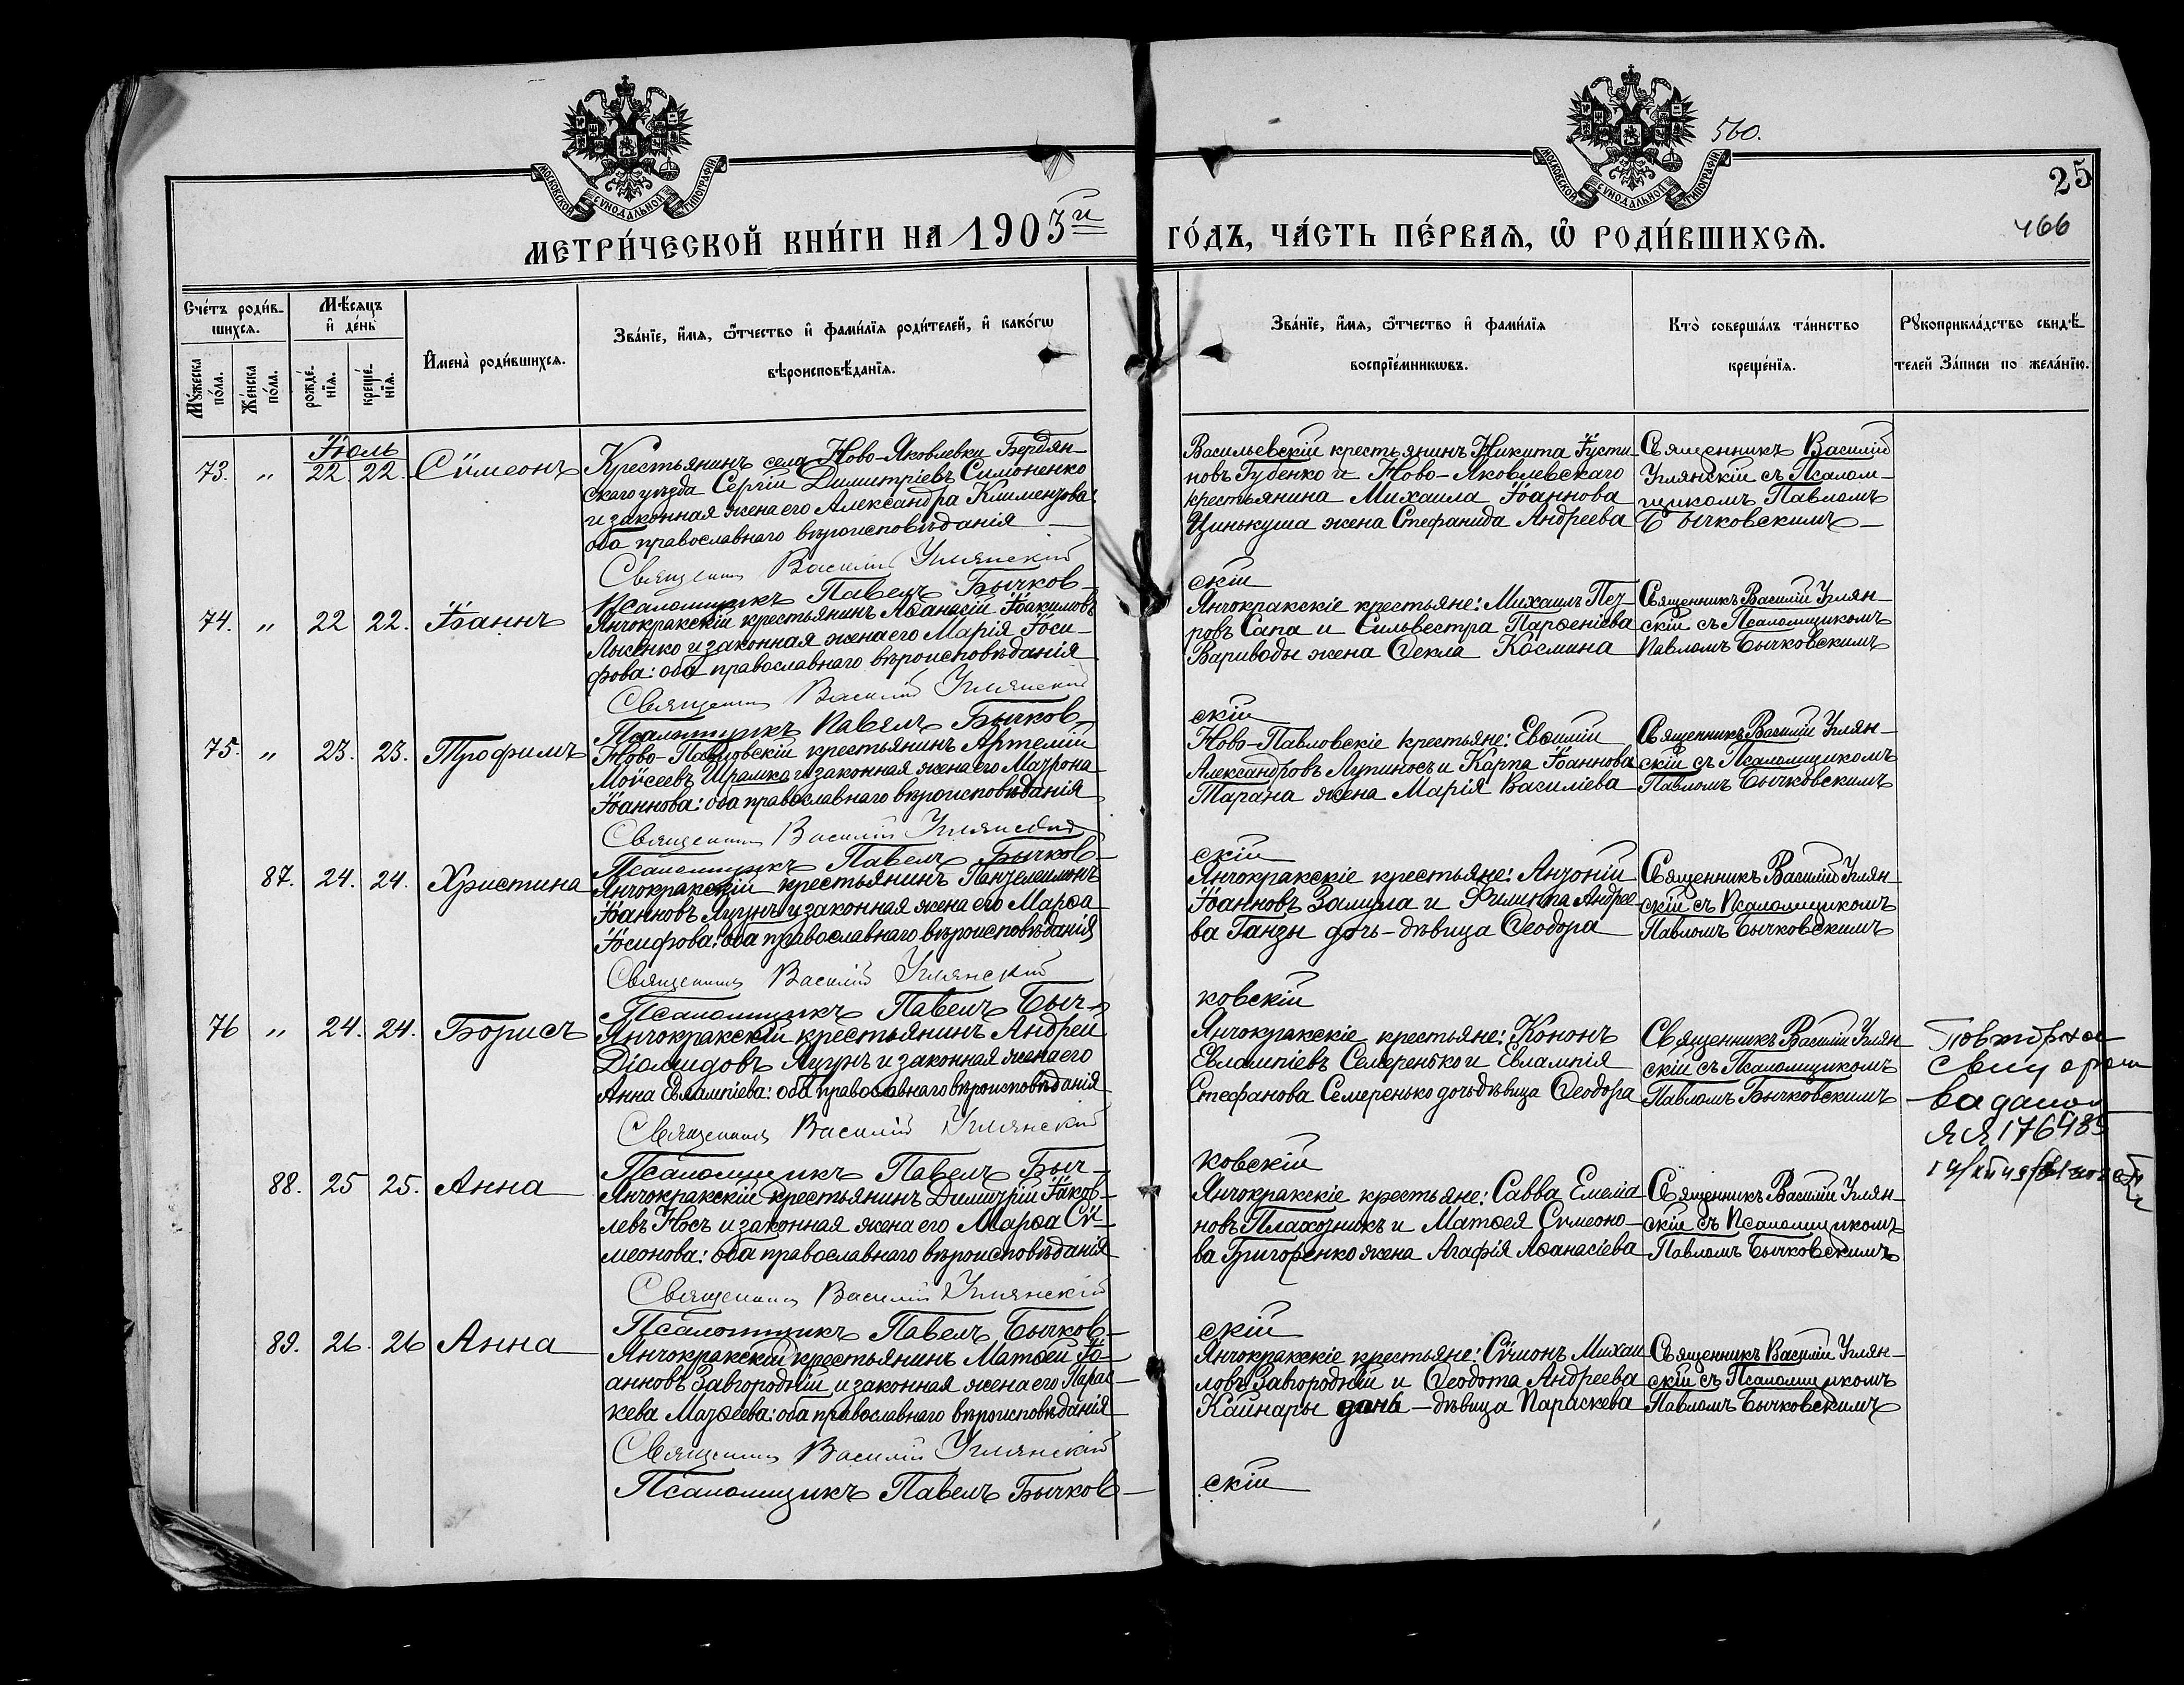 МОСКОВСКОЙ СѴНОДАЛЬНОЙ ТИПОГРАФІИ
МОСКОВСКОЙ СѴНОДАЛЬНОЙ ТИПОГРАФІИ
560.
25
466
МЕТРИ́ЧЕСКОЙ КНИ́ГИ НА 1903й
ГО́ДЪ, ЧА́СТЬ ПЕ́РВАЯ, Ѡ҆ РОДИ́ВШИХСЯ.
Сче́тъ роди́в-
шихся.
Мѣ́сяцъ
и҆ де́нь
Мꙋ́жеска
по́ла.
Же́нска
по́ла.
рожде́-
нїя.
креще́-
нїя.
И҆мена̀ роди́вшихся.
Зва́нїе, и҆́мя, ѻ҆́тчество и҆ фами́лїя роди́телей, и҆ како́гѡ
вѣроисповѣ́данїя.
Зва́нїе, и҆́мя, ѻ҆́тчество и҆ фами́лїя
воспрїе́мникѡвъ.
Кто̀ соверша́лъ та́инство
креще́нїя.
Рꙋкоприкла́дство свидѣ́-
телей За́писи по жела́нїю.
Іюль
73. " 22 22. Сѵмеонъ
Крестьянинъ села Ново-Яковлевки Бердян-
скаго уѣзда Сергій Димитріевъ Симоненко
и законная жена его Александра Климентова:
оба православнаго вѣроисповѣданія
Священникъ Василій Углянскій
Псаломщикъ Павелъ Бычков-
Васильевскій крестьянинъ Никита Іусти-
новъ Губенко и Ново-Яковлевскаго
крестьянина Михаила Іоаннова
Цинькуша жена Стефанида Андреева
скій
Священникъ Василій
Углянскій съ Псалом-
щикомъ Павломъ
Бычковскимъ
74. " 22 22. Іоаннъ
Янчокракскій крестьянинъ Аѳанасій Іоакимовъ
Лысенко и законная жена его Марія Іоси-
фова: оба православнаго вѣроисповѣданія
Священникъ Василій Углянскій
Псаломщикъ Павелъ Бычков-
Янчокракскіе крестьяне: Михаилъ Пет-
ровъ Сапа и Сильвестра Парѳеніева
Вариводы жена Ѳекла Космина
скій
Священникъ Василій Углян-
скій съ Псаломщикомъ
Павломъ Бычковскимъ
75. " 23. 23. Трофимъ
Ново-Павловскій крестьянинъ Артемій
Моѵсеевъ Шрамко и законная жена его Матрона
Іоаннова: оба православнаго вѣроисповѣданія
Священникъ Василій Углянскій
Псаломщикъ Павелъ Бычков-
Ново-Павловскіе крестьяне: Евѳимій
Александровъ Лупиносъ и Карпа Іоаннова
Тарана жена Марія Василіева
скій
Священникъ Василій Углян-
скій съ Псаломщикомъ
Павломъ Бычковскимъ
87. 24. 24. Христина
Янчокракскій крестьянинъ Пантелеимонъ
Іоанновъ Яцунъ и законная жена его Марѳа
Іосифова: оба православнаго вѣроисповѣданія
Священникъ Василій Углянскій
Псаломщикъ Павелъ Быч-
Янчокракскіе крестьяне: Антоній
Іоанновъ Замула и Филиппа Андрее-
ва Ганзы дочь-дѣвица Ѳеодора
ковскій
Священникъ Василій Углян-
скій съ Псаломщикомъ
Павломъ Бычковскимъ
76 " 24. 24. Борисъ
Янчокракскій крестьянинъ Андрей
Діомидовъ Яцунъ и законная жена его
Анна Евлампіева: оба православнаго вѣроисповѣданія
Священникъ Василій Углянскій
Псаломщикъ Павелъ Быч-
Янчокракскіе крестьяне: Кононъ
Евлампіевъ Семеренько и Евлампія
Стефанова Семеренько дочь дѣвица Ѳеодора
ковскій
Священникъ Василій Углян
скій съ Псаломщикомъ
Павломъ Бычковскимъ
Повторное
ЯЯ 176485
88. 25 25. Анна
Янчокракскій крестьянинъ Димитрій Іаков-
левъ Носъ и законная жена его Марѳа Сѵ-
меонова: оба православнаго вѣроисповѣданія
Священникъ Василій Углянскій
Псаломщикъ Павелъ Бычков-
Янчокракскіе крестьяне: Савва Емелiа
новъ Плахотникъ и Матѳея Сѵмеоно-
ва Григоренко жена Агафія Аѳанасіева
скій
Священникъ Василій Углян-
скій съ Псаломщикомъ
Павломъ Бычковскимъ
89. 26. 26 Анна
Янчокракскій крестьянинъ Матѳей Іо-
анновъ Завгородній и законная жена его Парас-
кева Матѳеева: оба православнаго вѣроисповѣданія
Священникъ Василій Углянскій
Псаломщикъ Павелъ Бычков-
Янчокракскіе крестьяне: Сѵмонъ Михаи
ловъ Завгородній и Ѳеодота Андреева
Кайнары дочь-дѣвица Параскева
скій
Священникъ Василій Углян-
скій съ Псаломщикомъ
Павломъ Бычковскимъ